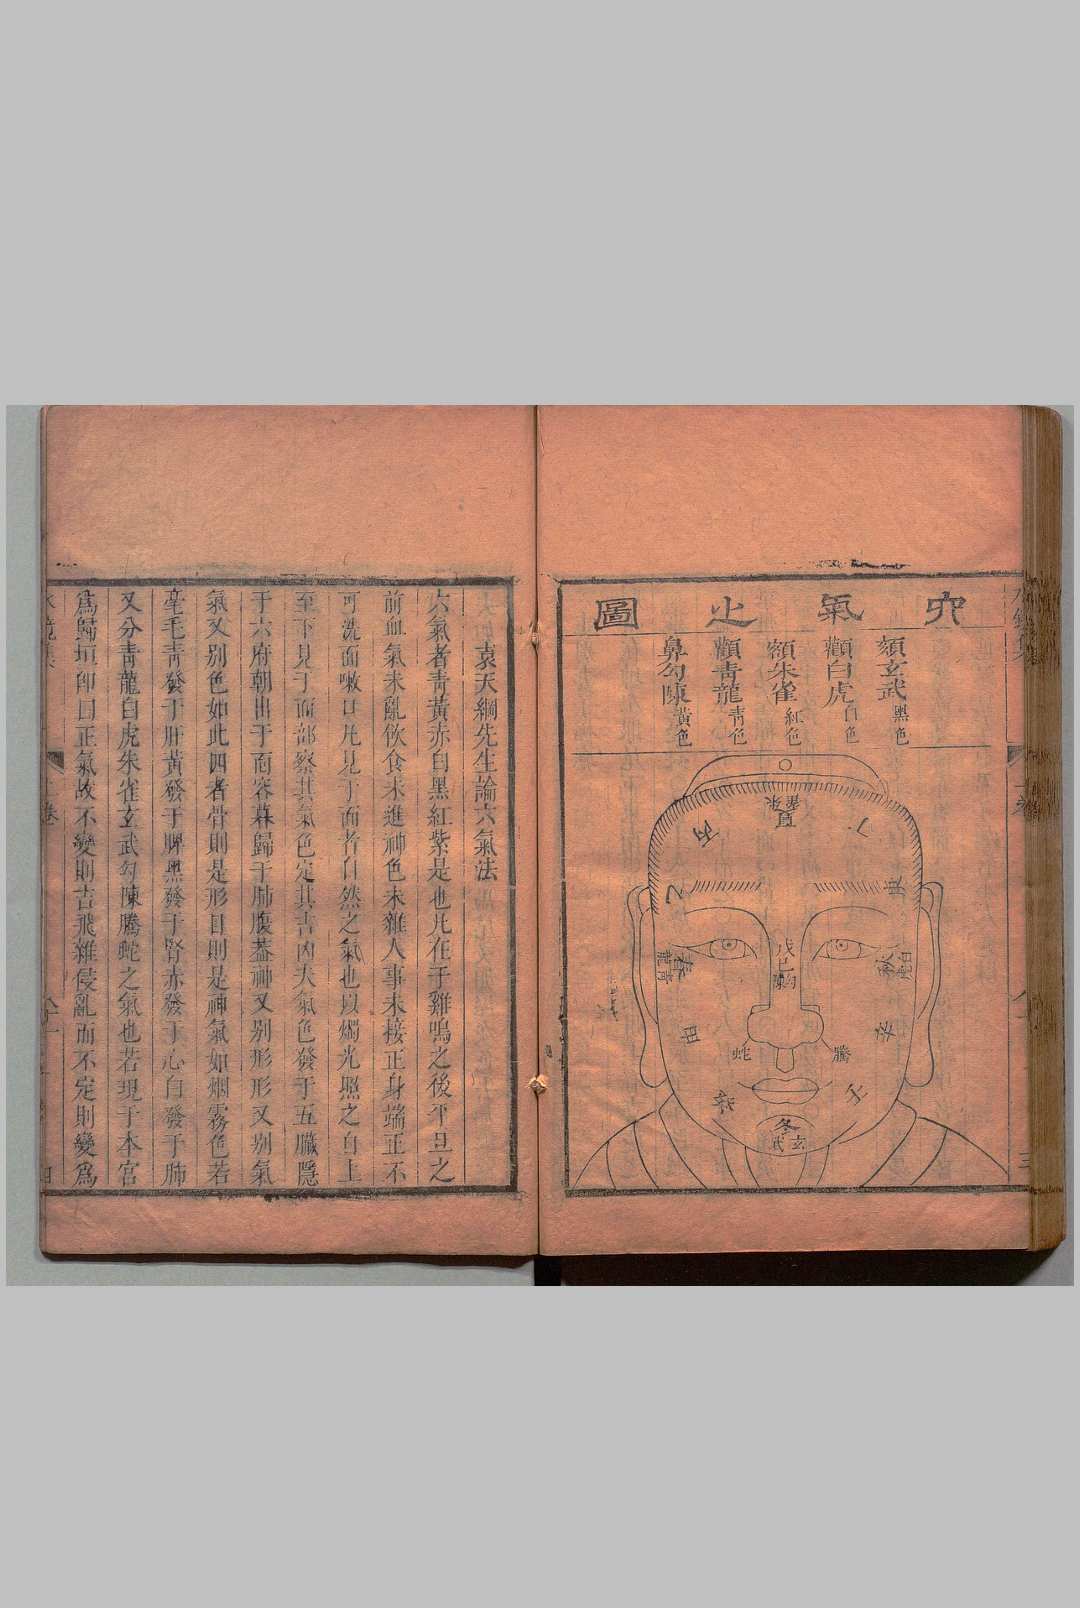 六氣之圖
頦玄武黑色
顴白虎白色
額朱雀紅色
顴青龍青色
鼻勾陳黃色
夏
朱雀
丁
丙
庚
乙
秋
白虎
戊土
勾陳
春
青龍
辛
甲
騰
蛇
壬
癸
冬
玄武
袁天綱先生論六氣法
六氣者青黃赤白黑紅紫是也凡在于雞鳴之後平旦之
前血氣未亂飲食未進神色未雜人事未接正身端正不
可洗面嗽口凡見于面者自然之氣也以燭光照之自上
至下見于面部察其氣色定其吉凶夫氣色發于五臟隱
于六府朝出于面容暮歸于肺腹蓋神又别形形又别氣
氣又别色如此四者骨則是形目則是神氣如烟霧色若
毫毛青發于肝黃發于脾黑發于腎赤發于心白發于肺
又分青龍白虎朱雀玄武勾陳騰蛇之氣也若現于本宮
爲歸垣印曰正氣故不變則吉飛雜侵亂而不定則變爲